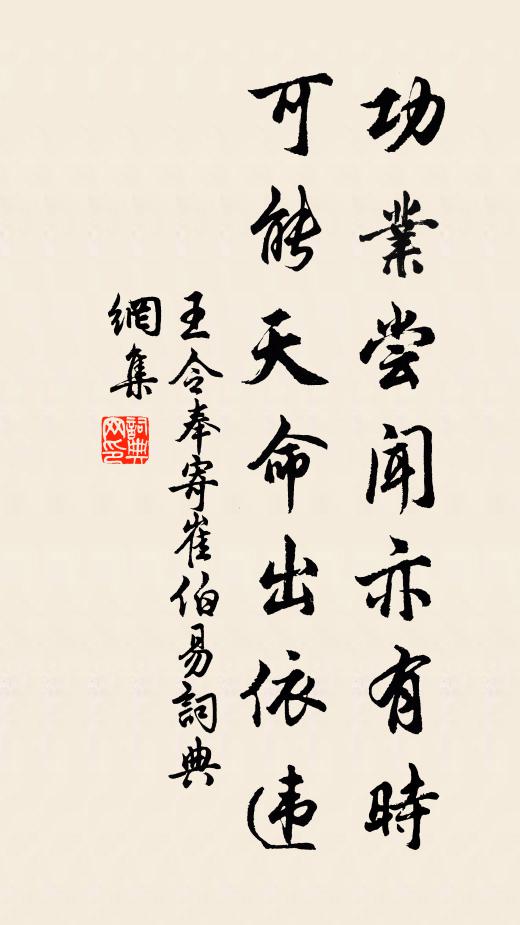 功業尝闻亦有時
可能天命出依违
王令奉寄崔伯易詞典
網集
詞典
网印